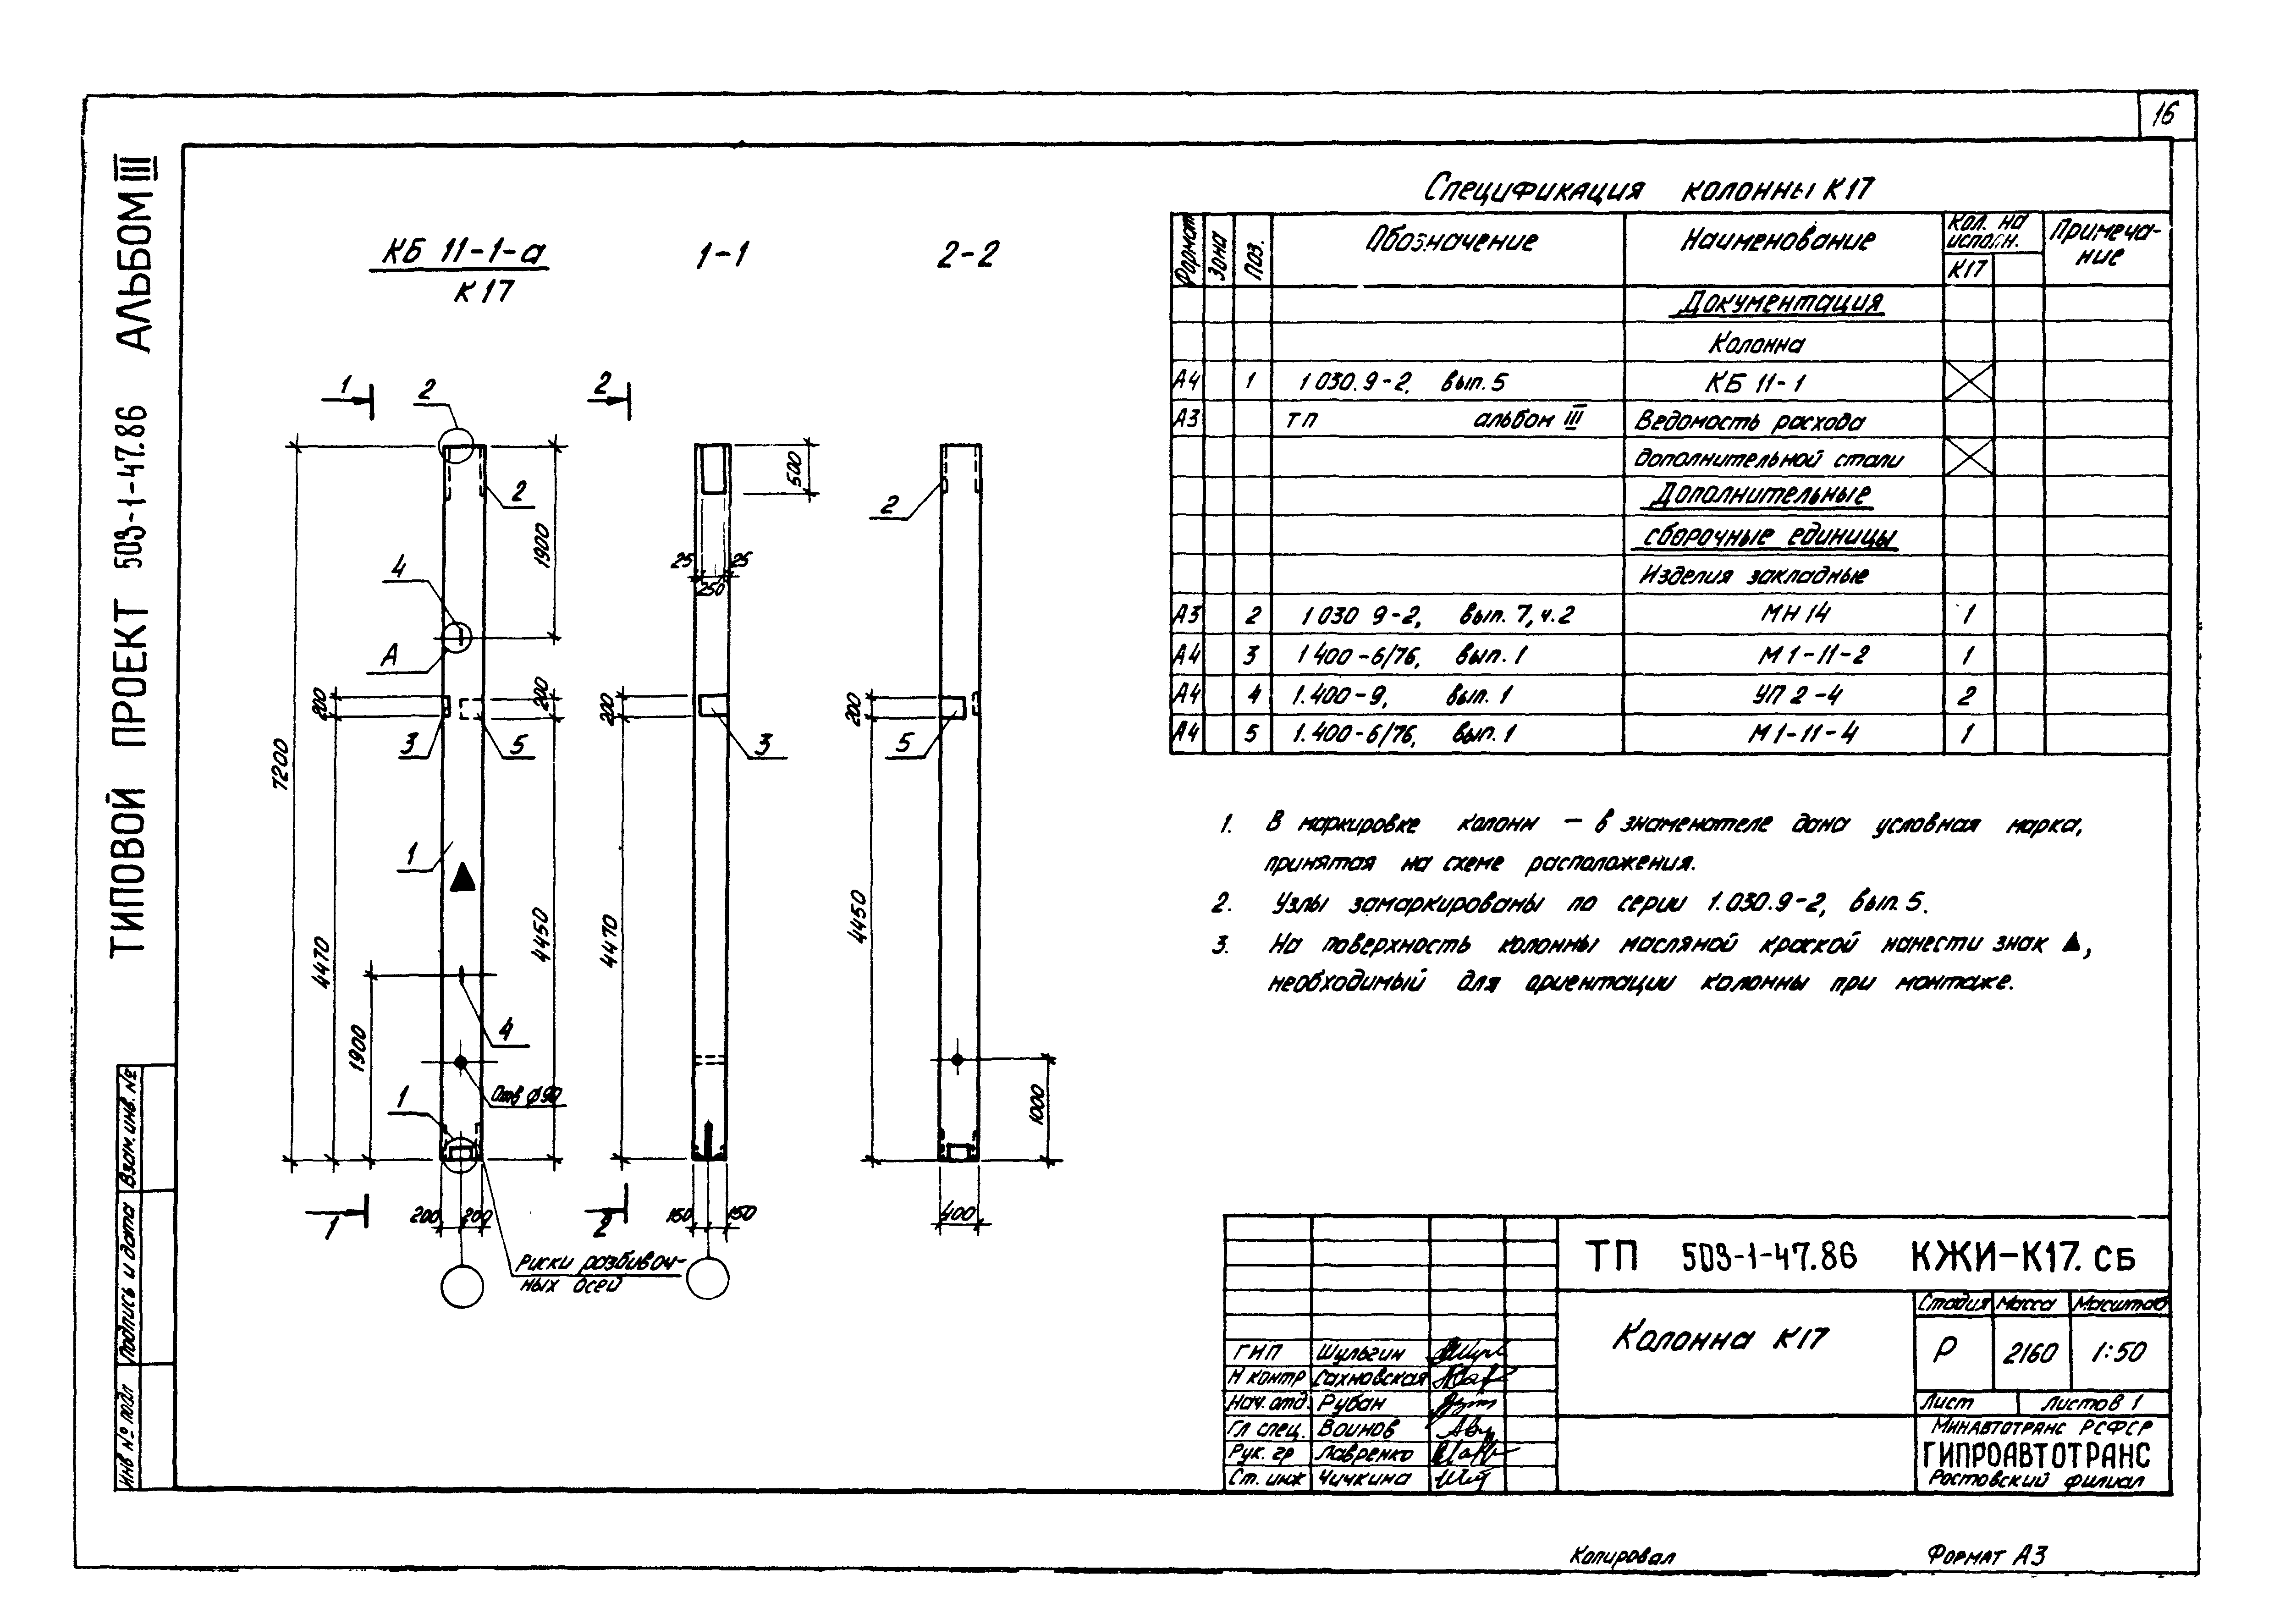 16
ТИПОВОЙ ПРОЕКТ 503-1-47.86 АЛЬБОМ III
КБ 11-1-а
К 17
1-1
2-2
1
2
2
2
4
А
3
5
1
4
1
Отв ф 90
1
2
7200
4470
200
1900
1900
200
4450
200 200
Риски разбивоч-
ных осей
500
25 25
250
200
3
4470
150 150
2
200
5
4450
1000
400
Спецификация колонны К17
Формат Зона Поз. Обозначение Наименование Кол. на исполн. Примеча-
ние
К17
Документация
Колонна
А4 1 1 030.9-2, вып. 5 КБ 11-1
А3 ТП альбом III Ведомость расхода
дополнительной стали
Дополнительные
сборочные единицы
Изделия закладные
А3 2 1 030 9-2, вып. 7, ч.2 МН 14 1
А4 3 1 400-6/76, вып. 1 М 1-11-2 1
А4 4 1.400-9, вып. 1 УП 2-4 2
А4 5 1.400-6/76, вып. 1 М 1-11-4 1
1. В маркировке колонн – в знаменателе дана условная марка,
принятая на схеме расположения.
2. Узлы замаркированы по серии 1.030.9-2, вып. 5.
3. На поверхность колонны масляной краской нанести знак ▲,
необходимый для ориентации колонны при монтаже.
ТП 503-1-47.86 КЖИ-К17. СБ
Колонна К17
Стадия Масса Масштаб
Р 2160 1:50
Лист Листов 1
Минавтотранс РСФСР
ГИПРОАВТОТРАНС
Ростовский филиал
ГИП Шульгин
Н контр Сахновская
Нач. отд. Рубан
Гл спец. Воинов
Рук. гр Лавренко
Ст. инж Чичкина
Инв № подл Подпись и дата Взам. инв. №
Копировал Формат А3